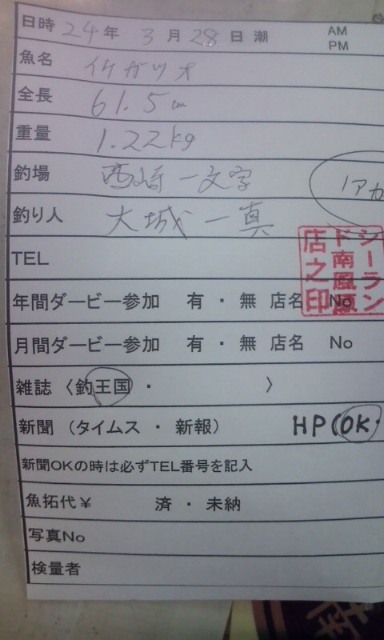 日時 24年 3月 28日 潮 AM PM
魚名 イケガツオ
全長 61.5cm
重量 1.22kg
釣場 西崎一文字
釣り人 大城一真
シーランド南風原店之印
TEL
年間ダービー参加 有・無 店名 No
月間ダービー参加 有・無 店名 No
雑誌〈釣王国・ 〉
新聞（タイムス・新報） HP(OK・
新聞OKの時は必ずTEL番号を記入
魚拓代¥ 済・未納
写真No
検量者